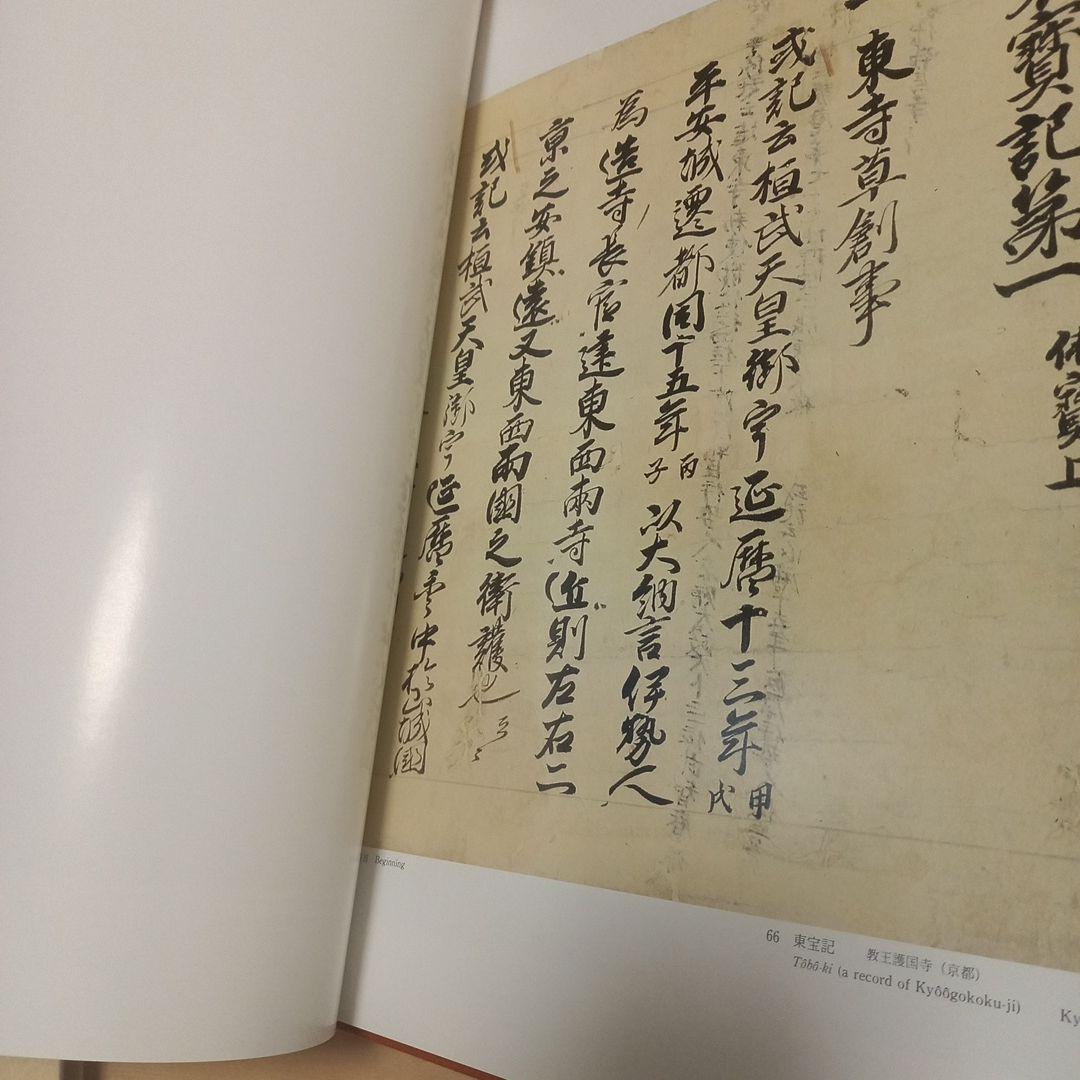 寶記第一 佛寳上
一東寺草創事
或記云桓武天皇御宇延暦十三年甲戌
平安城遷都同十五年丙子以大納言伊勢人
為造寺長官造東西兩寺近則左右二
京之安鎮遠又東西兩國之衛護也云々
或記云桓武天皇御宇延暦年中
Beginning
66 東宝記 教王護国寺（京都）
Tôbô-ki (a record of Kyôôgokoku-ji)
Ky